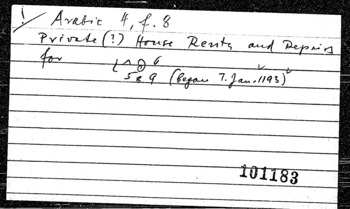 Arabic 4, f. 8
Private (?) House Rents and Repairs
for
589 (began 7. Jan. 1193)
101183